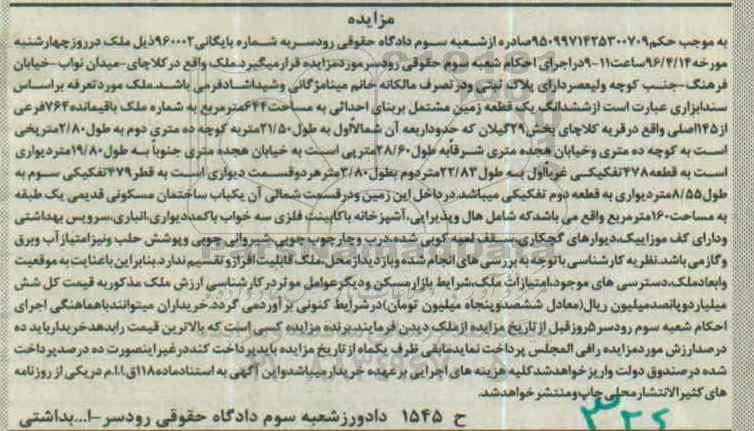 مزایده
به موجب حکم۹۵۰۹۹۷۱۴۲۵۳۰۰۷۰۹صادره ازشعبه سوم دادگاه حقوقی رودسربه شماره بایگانی۹۶۰۰۰۲ذیل ملک درروزچهارشنبه
مورخه۹۶/۴/۱۴ساعت۱۱-۹دراجرای احکام شعبه سوم حقوقی رودسرموردمزایده قرارمیگیرد.ملک واقع درکلاچای-میدان نواب-خیابان
فرهنگ-جنب کوچه ولیعصردارای پلاک ثبتی ودرتصرف مالکانه خانم مینامژگانی وشیداشادفرمی باشد.ملک موردتعرفه براساس
سندابزاری عبارت است ازششدانگ یک قطعه زمین مشتمل بربنای احداثی به مساحت۶۴۴مترمربع به شماره ملک باقیمانده۷۶۴فرعی
از۱۴۵اصلی واقع درقریه کلاچای بخش۲۹گیلان که حدوداربعه آن شمالااول به طول۲۱/۵۰متربه کوچه ده متری دوم به طول۲/۸۰مترپخی
است به کوچه ده متری وخیابان هجده متری شرقابه طول۲۸/۶۰مترپی است به خیابان هجده متری جنوبا به طول۱۹/۸۰متردیواری
است به قطعه۴۷۸تفکیکی غرباًاول به طول۲۲/۸۳متردوم بطول۳/۸۰مترهردوقسمت دیواری است به قطر۴۷۹تفکیکی سوم به
طول۸/۵۵متردیواری به قطعه دوم تفکیکی میباشد.درداخل این زمین ودرقسمت شمالی آن یکباب ساختمان مسکونی قدیمی یک طبقه
به مساحت۱۶۰مترمربع واقع می باشدکه شامل هال وپذیرایی،آشپزخانه باکابینت فلزی سه خواب باکمددیواری،انباری،سرویس بهداشتی
ودارای کف موزاییک،دیوارهای گچکاری،سقف لمبه کوبی شده،درب وچارچوب چوبی،شیروانی چوبی وپوشش حلب ونیزامتیازآب وبرق
وگازمی باشد.نظریه کارشناسی باتوجه به بررسی های انجام شده وبازدیدازمحل،ملک قابلیت افرازوتقسیم ندارد.بنابراین باعنایت به موقعیت
وابعادملک،دسترسی های موجود،امتیازات ملک،شرایط بازارمسکن ودیگرعوامل موثردرکارشناسی ارزش ملک مذکوربه قیمت کل شش
میلیاردوپانصدمیلیون ریال(معادل ششصدوپنجاه میلیون تومان)درشرایط کنونی برآوردمی گردد.خریداران میتوانندباهماهنگی اجرای
احکام شعبه سوم رودسر۵روزقبل ازتاریخ مزایده ازملک دیدن فرمایند.برنده مزایده کسی است که بالاترین قیمت رابدهدخریداربایدده
درصدارزش موردمزایده رافی المجلس پرداخت نمایدمابقی ظرف یکماه ازتاریخ مزایده بایدپرداخت کنددرغیراینصورت ده درصدپرداخت
شده درصندوق دولت واریزخواهدشدکلیه هزینه های اجرایی برعهده خریدارمیباشدواین آگهی به استنادماده۱۱۸ق.ا.ا.م دریکی ازروزنامه
های کثیرالانتشارمحلی چاپ ومنتشرخواهدشد.
ح ۱۵۴۵ دادورزشعبه سوم دادگاه حقوقی رودسر-ا...بداشتی
۳۲۶